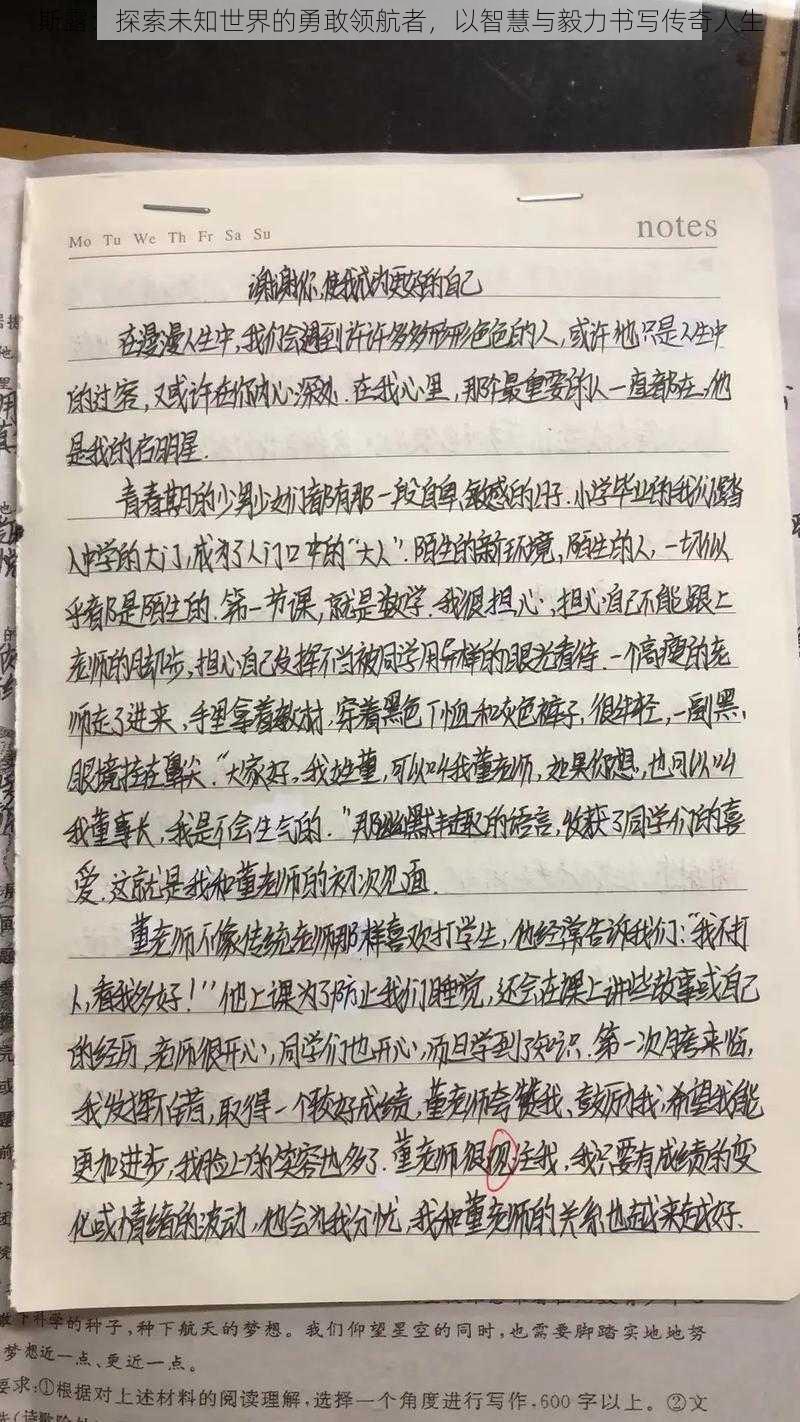 斯露：探索未知世界的勇敢领航者，以智慧与毅力书写传奇人生
Mo Tu We Th Fr Sa Su
notes
谢谢你，使我成为更好的自己
在漫漫人生中，我们会遇到许许多多形形色色的人，或许他只是人生中
的过客，又或许在你内心深处．在我心里，那个最重要的人一直都在，他
是我的启明星．
青春期的少男少女们都有那一段自卑、敏感的日子．小学毕业的我们踏
入中学的大门，成为了人们口中的“大人”．陌生的新环境，陌生的人，一切似
乎都是陌生的．第一节课，就是数学．我很担心，担心自己不能跟上
老师的脚步，担心自己发挥不当被同学用异样的眼光看待．一个高瘦的老
师走了进来，手里拿着教材，穿着黑色T恤和灰色裤子，很年轻，一副黑
眼镜挂在鼻尖．“大家好，我姓董，可以叫我董老师，如果你想，也可以叫
我董事长，我是不会生气的．”那幽默风趣的语言，收获了同学们的喜
爱．这就是我和董老师的初次见面．
董老师不像传统老师那样喜欢打学生，他经常告诉我们：“我不打
人，看我多好！”他上课为了防止我们睡觉，还会在课上讲些故事或自己
的经历，老师很开心，同学们也开心，而且学到了知识．第一次月考来临，
我发挥不错，取得一个较好成绩，董老师夸赞我、鼓励我，希望我能
更加进步，我脸上的笑容也多了．董老师很观注我，我只要有成绩的变
化或情绪的波动，他会为我分忧，我和董老师的关系也越来越好．
下科学的种子，种下航天的梦想。我们仰望星空的同时，也需要脚踏实地地努
梦想近一点、更近一点。
要求：①根据对上述材料的阅读理解，选择一个角度进行写作，600字以上。②文